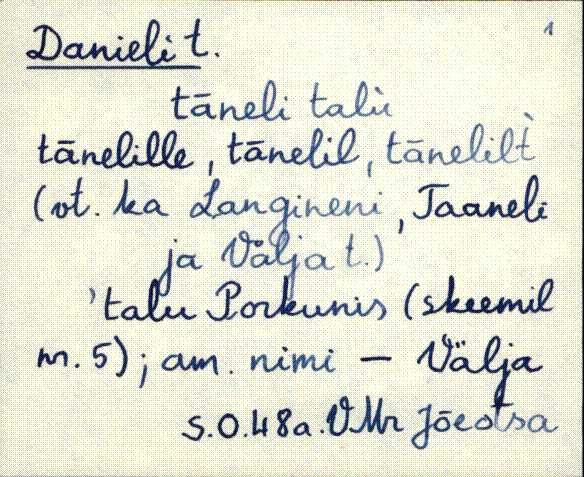 1
Danieli t.
tāneli talù
tānelille, tānelil, tānelilt̀
(vt. ka Langineni, Taaneli
ja Välja t.)
'talu Porkunis (skeemil
nr. 5); am. nimi — Välja
S.O.48a.VMr Jõeotsa